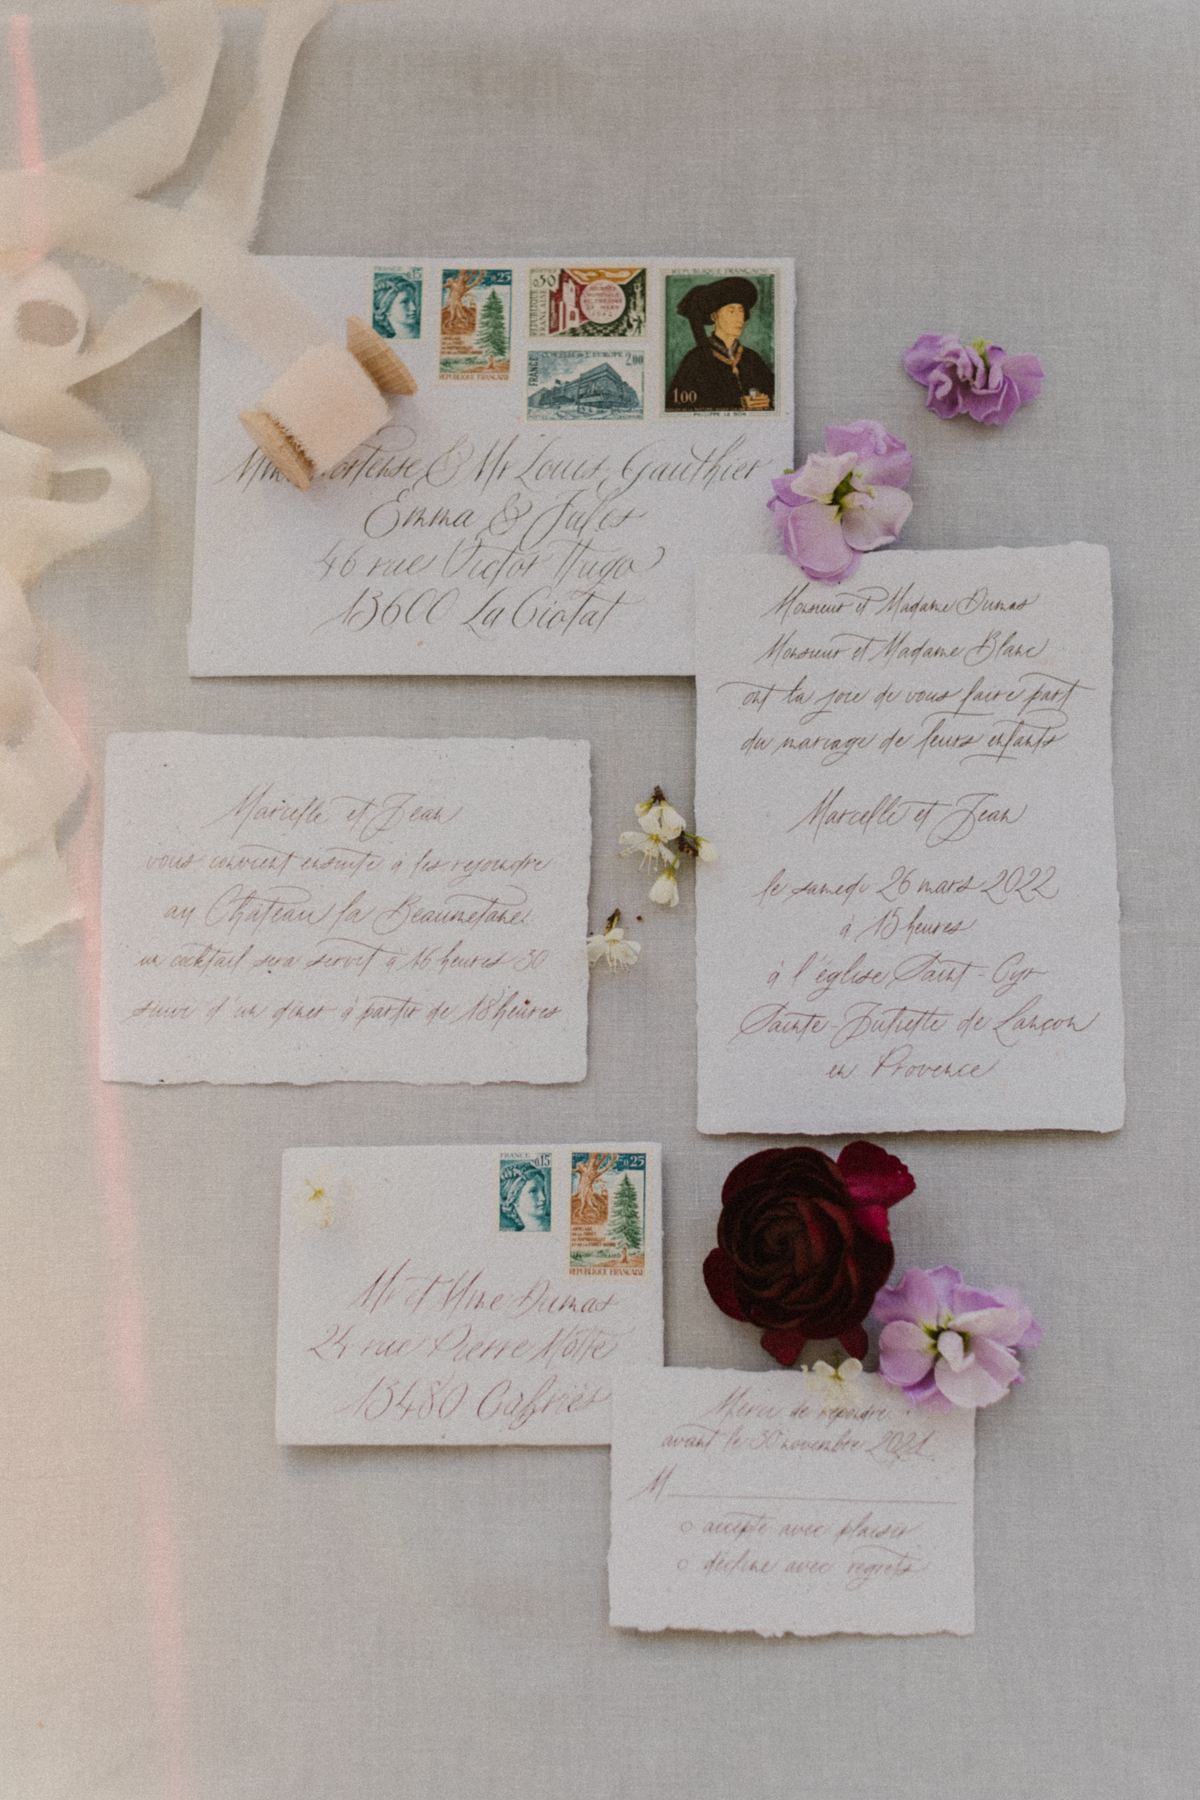 FRANCE 0.15
0.25
REPUBLIQUE FRANÇAISE
0.50
REPUBLIQUE FRANÇAISE
CONSEIL DE L'EUROPE
FRANCE 2.00
REPUBLIQUE FRANÇAISE
1.00
PHILIPPE LE BON
Mme Hortense & Mr Louis Gauthier
Emma & Jules
46 rue Victor Hugo
13600 La Ciotat
Monsieur et Madame Dumas
Monsieur et Madame Blanc
ont la joie de vous faire part
du mariage de leurs enfants
Marcelle et Jean
le samedi 26 mars 2022
à 15 heures
à l'église Saint-Cyr
Sainte-Juliette de Lançon
en Provence
Marcelle et Jean
vous convient ensuite à les rejoindre
au Château la Beaumetane
un cocktail sera servit à 16 heures 30
suivi d'un dîner à partir de 18 heures
FRANCE 0.15
0.25
REPUBLIQUE FRANÇAISE
Mr et Mme Dumas
24 rue Pierre Motte
13480 Cabriès
Merci de répondre
avant le 30 novembre 2021
M
accepte avec plaisir
décline avec regrets